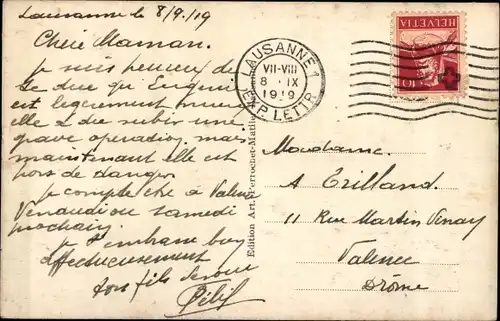 Lausanne le 8/9/19
Chère Maman.
Je suis heureux de
te dire qu'Eugenie
est legerement mieux
elle a du subir une
grave operation, mais
maintenant elle est
hors de danger.
Je compte être à Valence
Vendredi ou samedi
prochain.
Je t'embrasse bien
affectueusement
ton fils devoué
LAUSANNE 1
VII-VIII
8 IX
1919
EXP. LETTR.
HELVETIA
10
Edition Art. Perrochet-Matile
Madame
A Trilland.
11 Rue Martin Vinay
Valence
Drôme